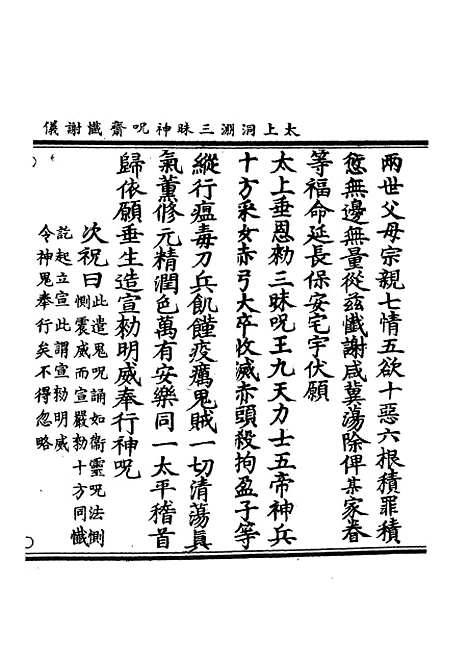 太上洞淵三昧神呪齋懺謝儀
兩世父母宗親七情五欲十惡六根積罪積
愆無邊無量從兹懺謝咸冀蕩除俾某家眷
等福命延長保安宅宇伏願
太上垂恩勑三昧呪王九天力士五帝神兵
十方采女赤弓大卒收滅赤頭殺拘盈子等
縱行瘟毒刀兵飢饉疫癘鬼賊一切清蕩眞
氣薰修元精潤色萬有安樂同一太平稽首
歸依願垂生造宣勑明威奉行神呪
次祝曰此遣鬼呪誦如衞靈呪法惻
惻震威而宣嚴勑十方同懺
訖起立宣此謂宣勑明威
令神鬼奉行矣不得忽略